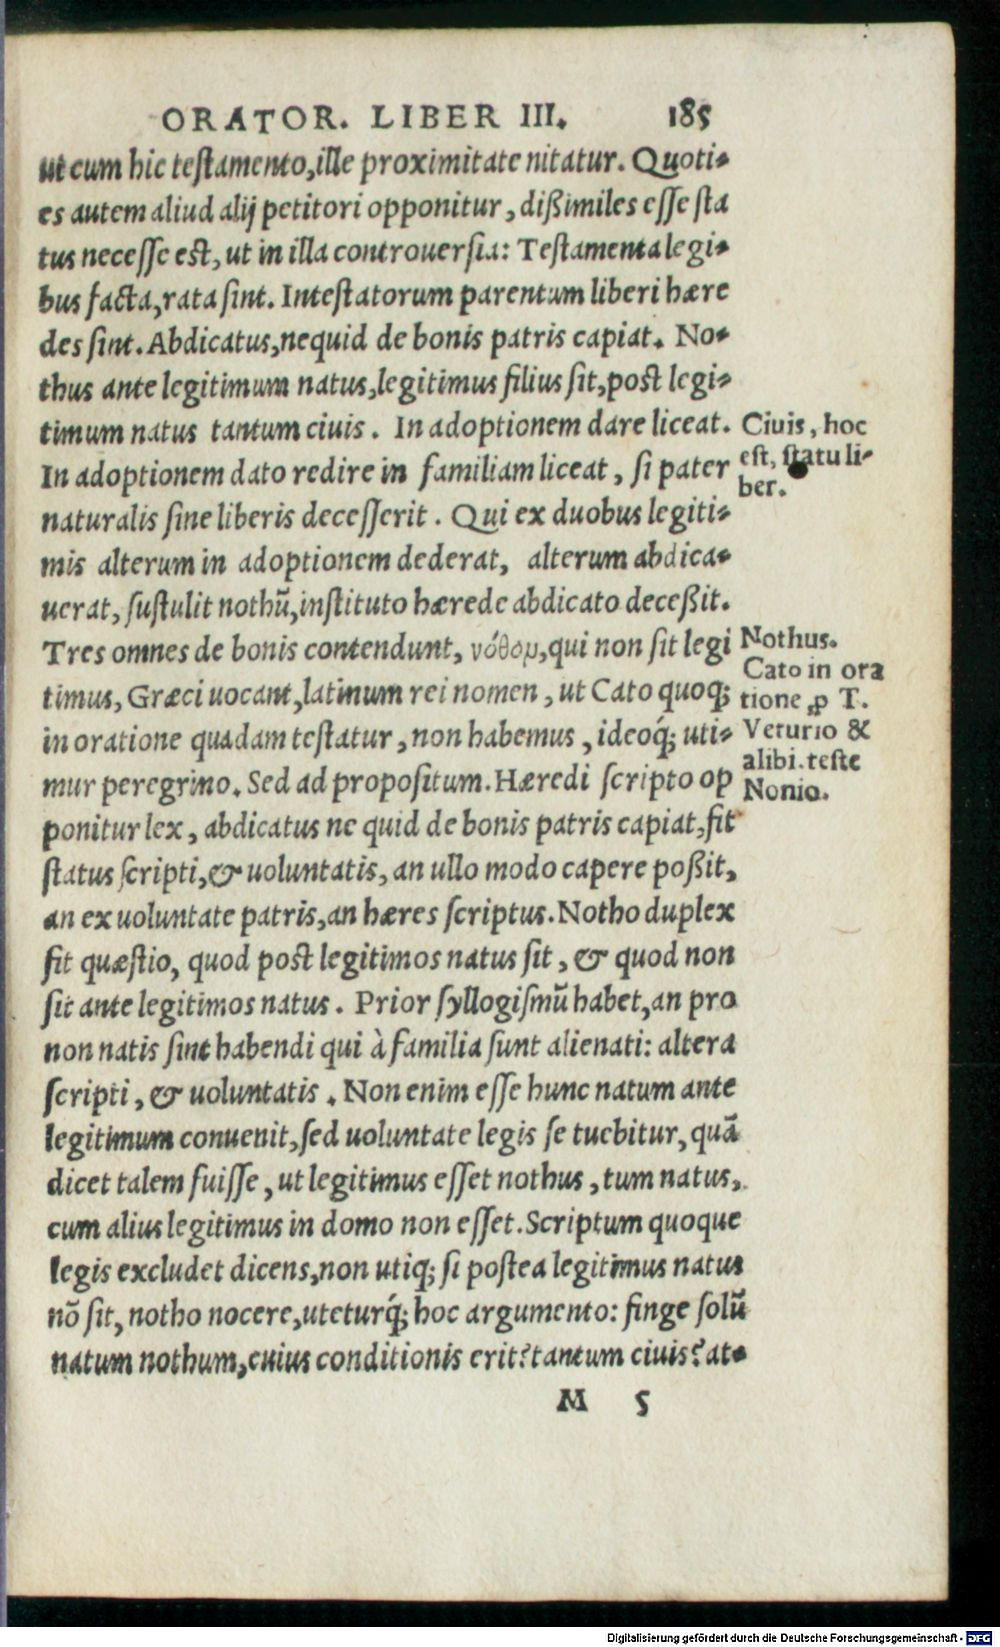 ORATOR. LIBER III. 185
ut cum hic testamento, ille proximitate nitatur. Quoti-
es autem aliud alij petitori opponitur, dißimiles esse sta
tus necesse est, ut in illa controuersia: Testamenta legi-
bus facta, rata sint. Intestatorum parentum liberi hære
des sint. Abdicatus, nequid de bonis patris capiat. No-
thus ante legitimum natus, legitimus filius sit, post legi-
timum natus tantum ciuis. In adoptionem dare liceat.
In adoptionem dato redire in familiam liceat, si pater
naturalis sine liberis decesserit. Qui ex duobus legiti-
mis alterum in adoptionem dederat, alterum abdica-
uerat, sustulit nothū, instituto hærede abdicato deceßit.
Tres omnes de bonis contendunt, νόθομ, qui non sit legi
timus, Græci uocant, latinum rei nomen, ut Cato quoq;
in oratione quadam testatur, non habemus, ideoq́; uti-
mur peregrino. Sed ad propositum. Hæredi scripto op
ponitur lex, abdicatus ne quid de bonis patris capiat, fit
status scripti, & uoluntatis, an ullo modo capere poßit,
an ex uoluntate patris, an hæres scriptus. Notho duplex
fit quæstio, quod post legitimos natus sit, & quod non
sit ante legitimos natus. Prior syllogismū habet, an pro
non natis sint habendi qui à familia sunt alienati: altera
scripti, & uoluntatis. Non enim esse hunc natum ante
legitimum conuenit, sed uoluntate legis se tuebitur, quā
dicet talem fuisse, ut legitimus esset nothus, tum natus,
cum alius legitimus in domo non esset. Scriptum quoque
legis excludet dicens, non utiq; si postea legitimus natus
nō sit, notho nocere, uteturq́; hoc argumento: finge solū
natum nothum, cuius conditionis erit? tantum ciuis? at-
M 5
Ciuis, hoc
est, statu li-
ber.
Nothus.
Cato in ora
tione ꝓ T.
Veturio &
alibi. teste
Nonio.
Digitalisierung gefördert durch die Deutsche Forschungsgemeinschaft - DFG